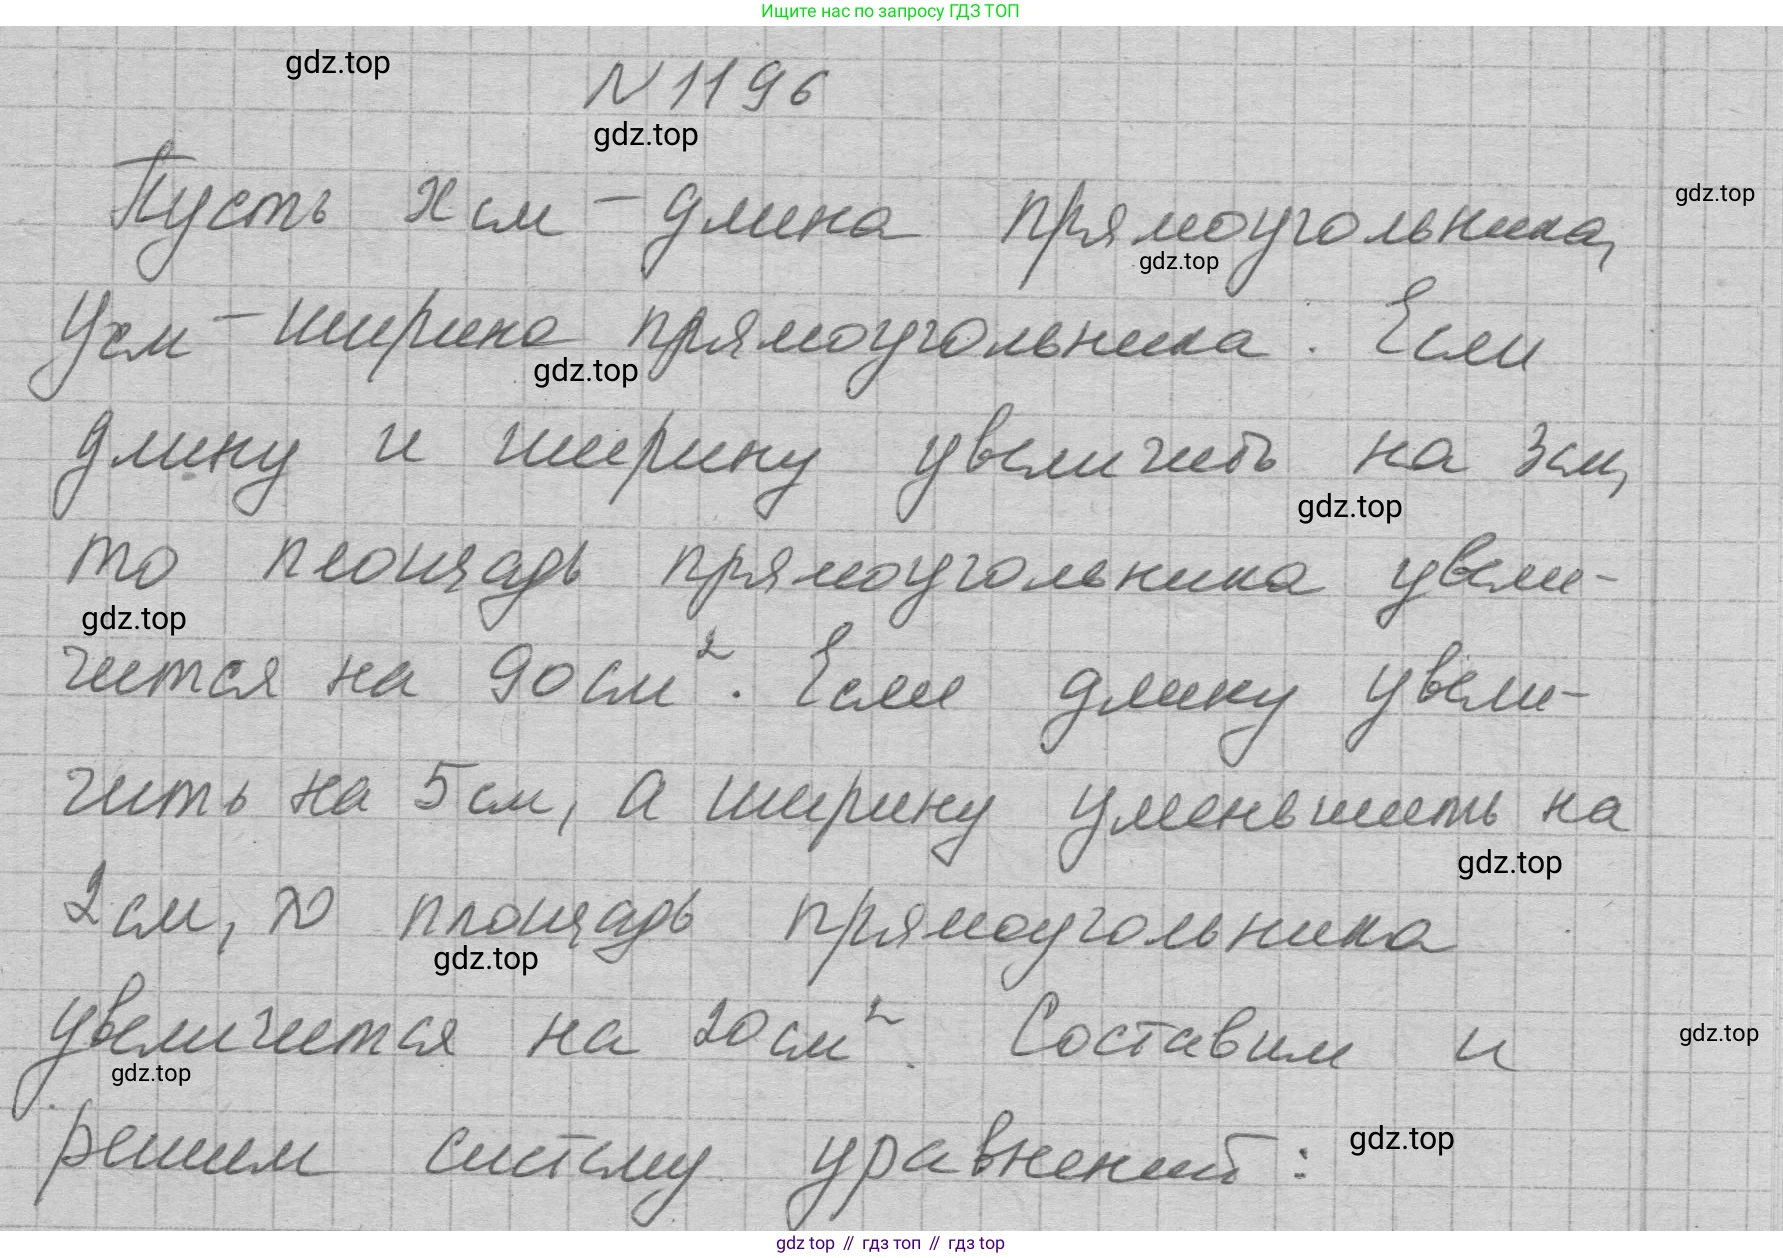 Ищите нас по запросу ГДЗ ТОП
gdz.top
N 1196
gdz.top
Пусть x см - длина прямоугольника,
gdz.top
gdz.top
y см - ширина прямоугольника. Если
gdz.top
длину и ширину увеличить на 3 см,
gdz.top
то площадь прямоугольника увели-
gdz.top
чится на 90 см². Если длину увели-
чить на 5 см, а ширину уменьшить на
gdz.top
2 см, то площадь прямоугольника
gdz.top
увеличится на 20 см². Составим и
gdz.top
gdz.top
решим систему уравнений:
gdz.top
gdz top // гдз топ // гдз top